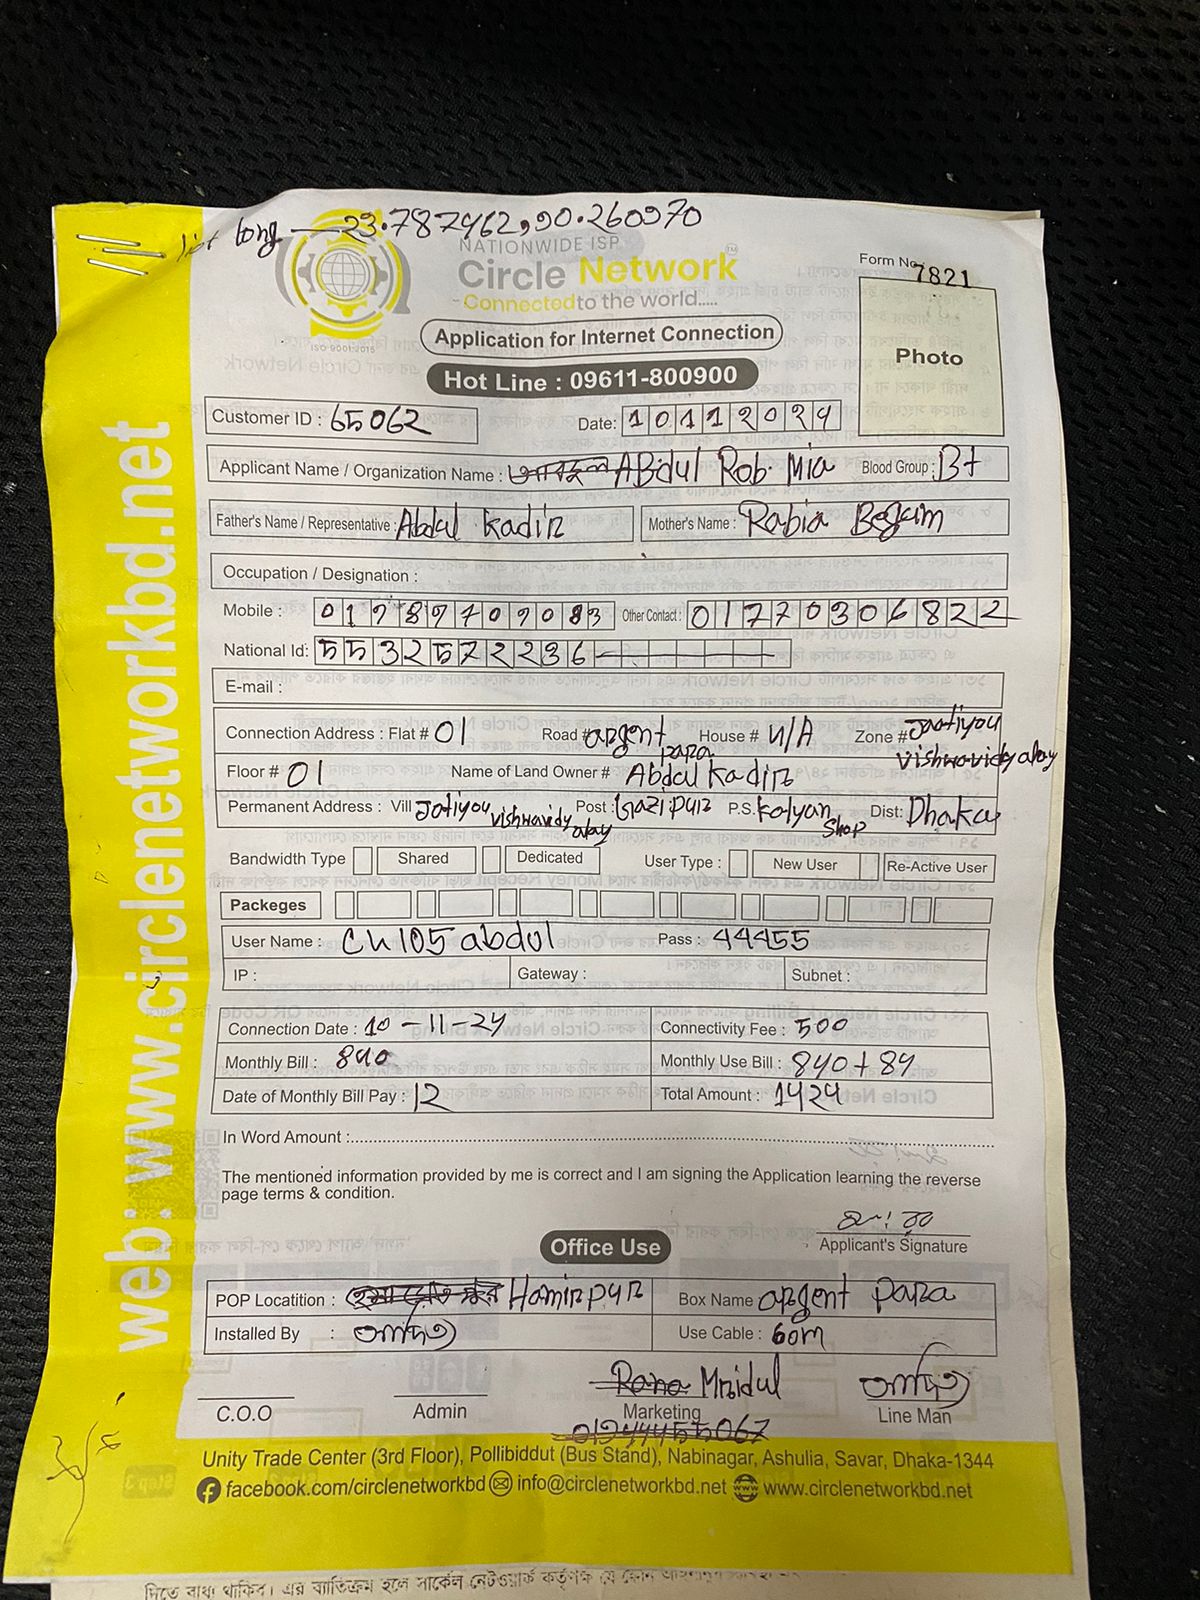 Long — 23.787462,90.260970
NATIONWIDE ISP
Circle Network TM
Connected to the world.....
ISO 9001:2015
Form No. 7821
Photo
Application for Internet Connection
Hot Line : 09611-800900
Customer ID : 65062 Date: 10112024
Applicant Name / Organization Name : ABdul Rob Mia Blood Group : B+
Father's Name / Representative : Abdul kadir Mother's Name : Rabia Begum
Occupation / Designation :
Mobile : 01789709083 Other Contact : 01770306822
National Id: 5532572236
E-mail :
Connection Address : Flat # 01 Road # argent para House # N/A Zone # Jatiyou vishwavidyalay
Floor # 01 Name of Land Owner # Abdul kadir
Permanent Address : Vill Jatiyou vishwavidyalay Post : Gazipur P.S. kolyan Shop Dist: Dhaka
Bandwidth Type Shared Dedicated User Type : New User Re-Active User
Packeges
User Name : CN105abdul Pass : 44455
IP : Gateway : Subnet :
Connection Date : 10-11-24 Connectivity Fee : 500
Monthly Bill : 840 Monthly Use Bill : 840 + 84
Date of Monthly Bill Pay : 12 Total Amount : 1424
In Word Amount :
The mentioned information provided by me is correct and I am signing the Application learning the reverse
page terms & condition.
Applicant's Signature
Office Use
POP Locatition : Hamirpur Box Name argent para
Installed By : Use Cable : 60m
Rana Mridul
C.O.O Admin Marketing Line Man
01244455067
Unity Trade Center (3rd Floor), Pollibiddut (Bus Stand), Nabinagar, Ashulia, Savar, Dhaka-1344
facebook.com/circlenetworkbd info@circlenetworkbd.net www.circlenetworkbd.net
web: www.circlenetworkbd.net